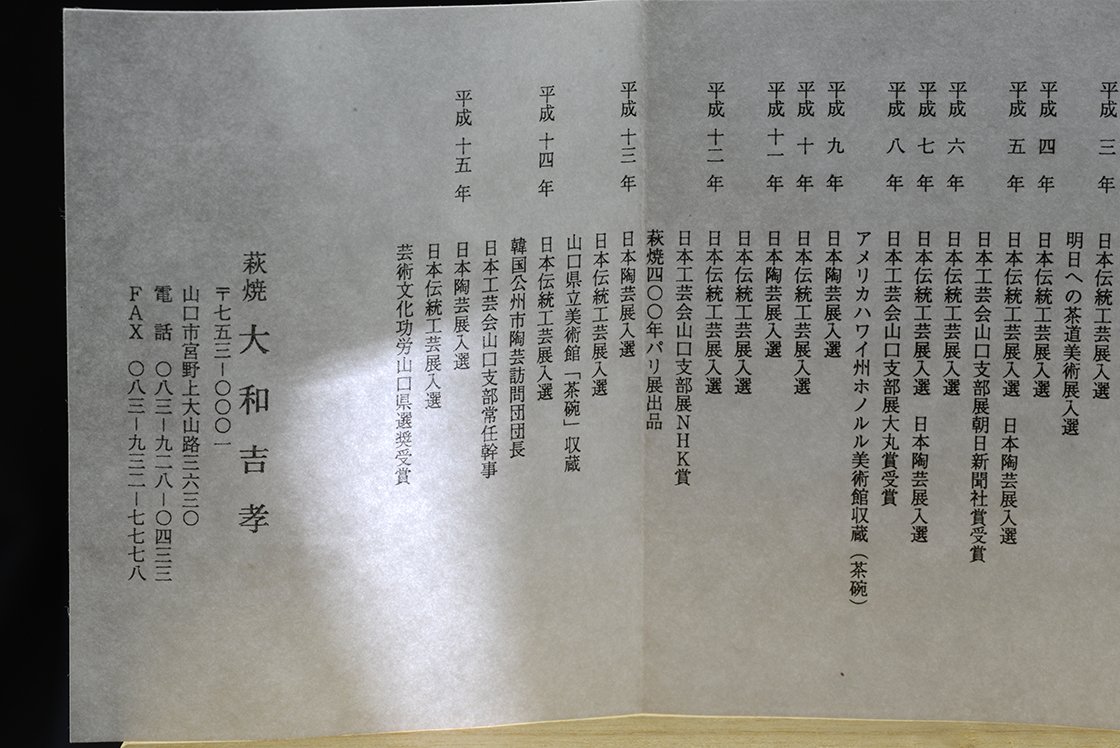 平成 三 年 日本伝統工芸展入選
明日への茶道美術展入選
平成 四 年 日本伝統工芸展入選
平成 五 年 日本伝統工芸展入選 日本陶芸展入選
日本工芸会山口支部展朝日新聞社賞受賞
平成 六 年 日本伝統工芸展入選
平成 七 年 日本伝統工芸展入選 日本陶芸展入選
平成 八 年 日本工芸会山口支部展大丸賞受賞
アメリカハワイ州ホノルル美術館収蔵(茶碗)
平成 九 年 日本陶芸展入選
平成 十 年 日本伝統工芸展入選
平成 十一 年 日本陶芸展入選
日本伝統工芸展入選
平成 十二 年 日本伝統工芸展入選
日本工芸会山口支部展NHK賞
萩焼四〇〇年パリ展出品
平成 十三 年 日本陶芸展入選
日本伝統工芸展入選
山口県立美術館「茶碗」収蔵
平成 十四 年 日本伝統工芸展入選
韓国公州市陶芸訪問団団長
日本工芸会山口支部常任幹事
平成 十五 年 日本陶芸展入選
日本伝統工芸展入選
芸術文化功労山口県選奨受賞
萩焼 大和吉孝
〒七五三−〇〇〇一
山口市宮野上大山路三六三〇
電 話 〇八三−九二八−〇四三三
FAX 〇八三−九三二−七七七八